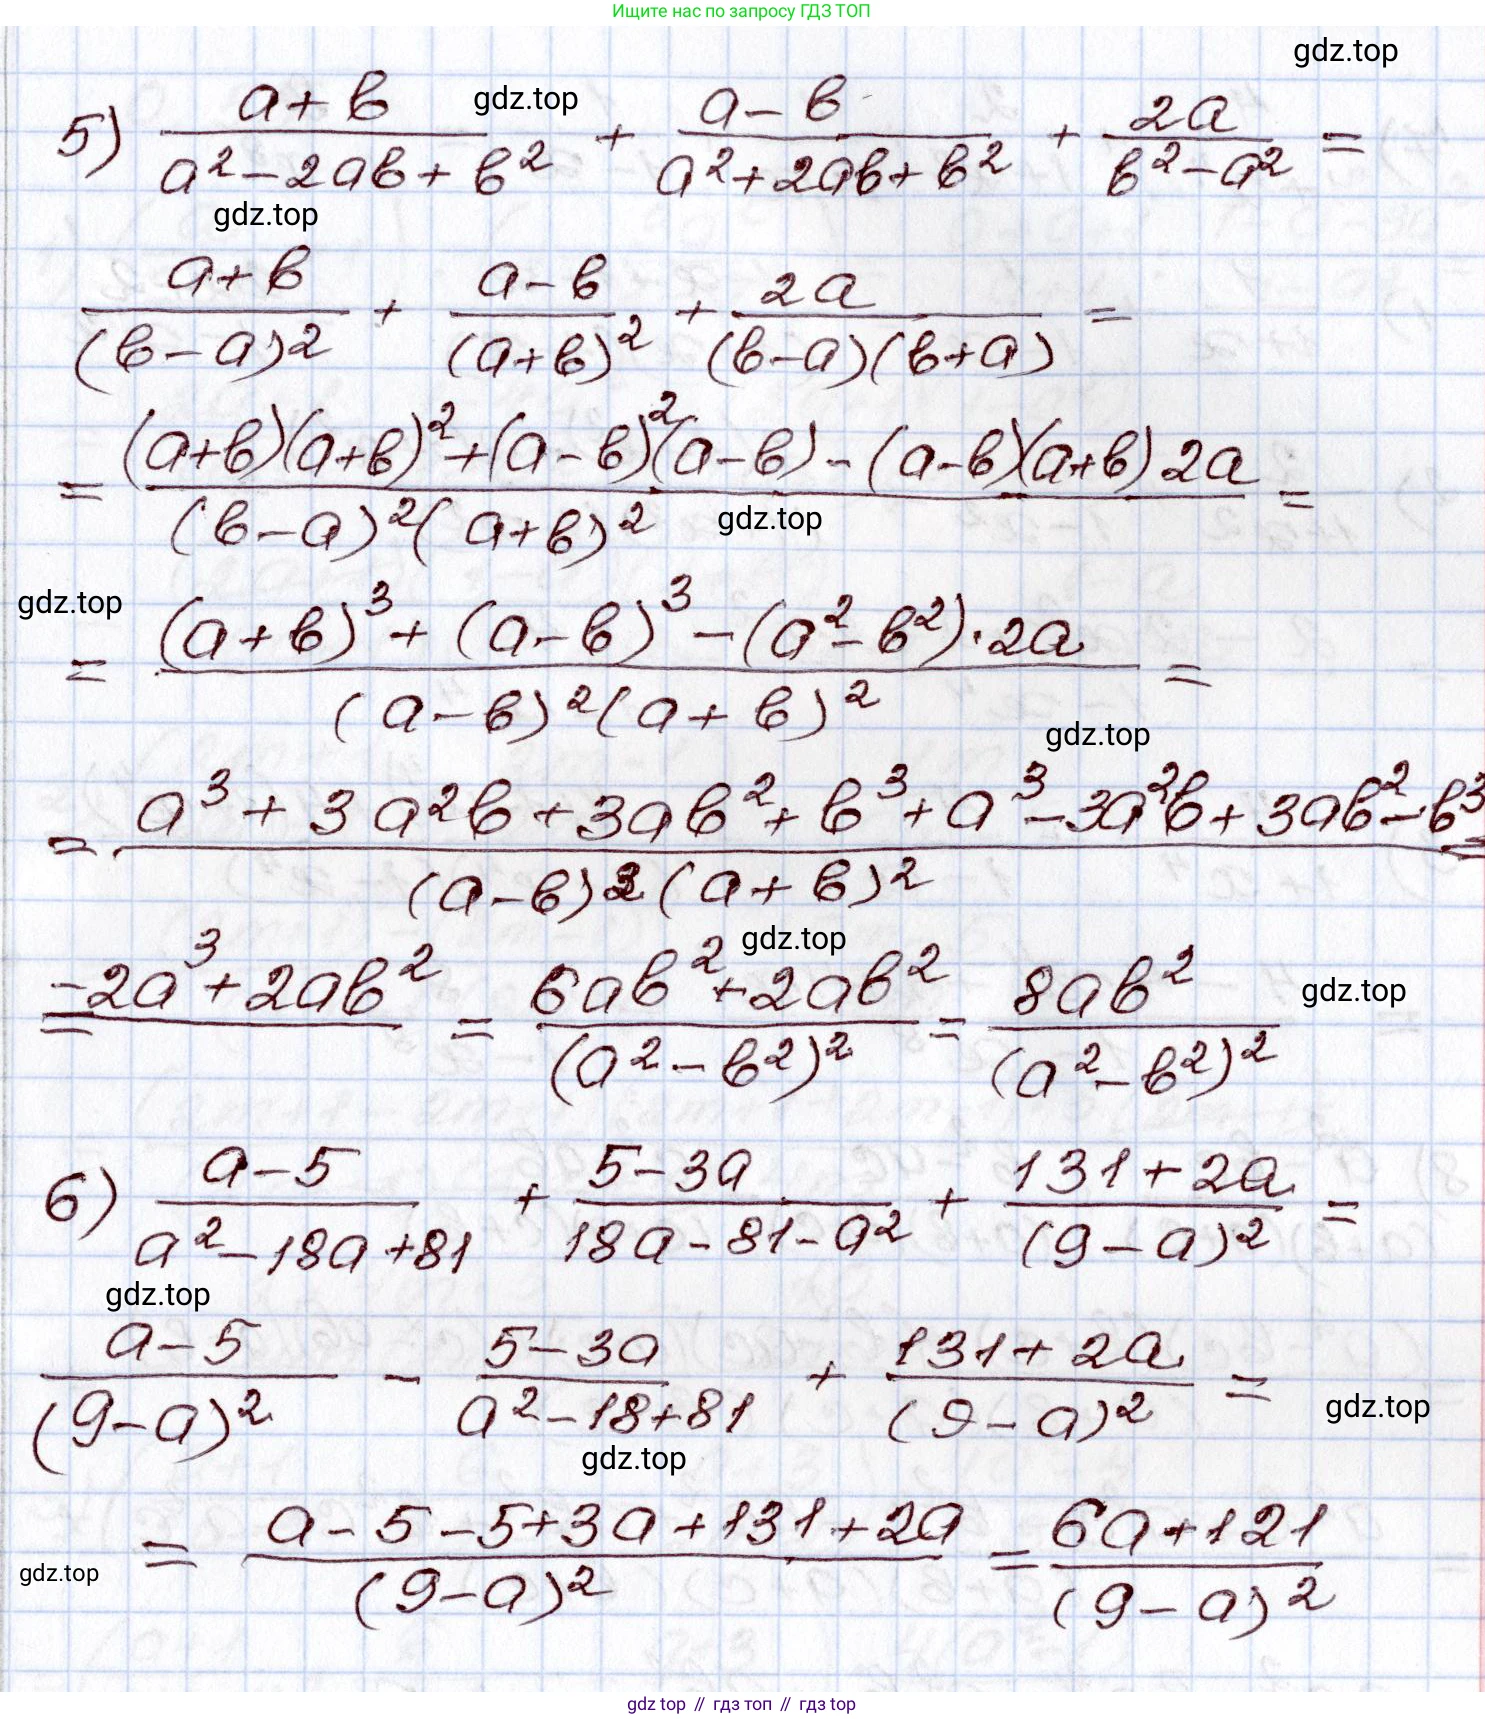 Ищите нас по запросу ГДЗ ТОП
gdz.top
5) (a+в)/(a²-2aв+в²) + (a-в)/(a²+2aв+в²) + 2a/(в²-a²) =
gdz.top
gdz.top
(a+в)/(в-a)² + (a-в)/(a+в)² + 2a/((в-a)(в+a)) =
= ((a+в)(a+в)²+(a-в)²(a-в)-(a-в)(a+в)2a)/((в-a)²(a+в)²) =
gdz.top
gdz.top
= ((a+в)³+(a-в)³-(a²-в²)·2a)/((a-в)²(a+в)²) =
gdz.top
= (a³+3a²в+3aв²+в³+a³-3a²в+3aв²-в³)/((a-в)2(a+в)²)
gdz.top
= -2a³+2aв² = (6aв²+2aв²)/(a²-в²)² = 8aв²/(a²-в²)²
gdz.top
6) (a-5)/(a²-18a+81) + (5-3a)/(18a-81-a²) + (131+2a)/(9-a)² =
gdz.top
(a-5)/(9-a)² - (5-3a)/(a²-18+81) + (131+2a)/(9-a)² =
gdz.top
gdz.top
= (a-5-5+3a+131+2a)/(9-a)² = (6a+121)/(9-a)²
gdz.top
gdz top // гдз топ // гдз top